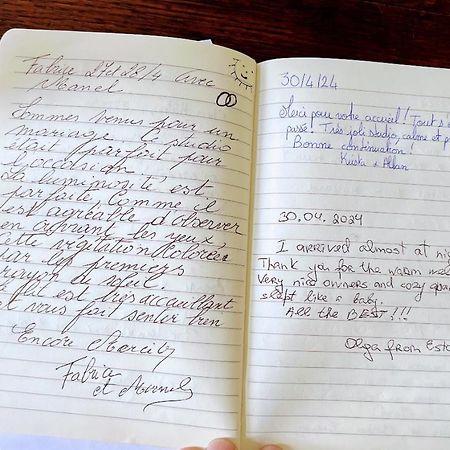 Fabrice 27 et 28/4 avec
Manel
Sommes venus pour un
mariage. Le studio
était parfait pour
l'occasion.
La luminosité est
parfaite, comme il
est agréable d'observer
en ouvrant les yeux,
cette végétation colorée
par les premiers
rayon de soleil.
L' est très accueillant
et vous fait sentir
Encore Merci
Fabrice
et Manel
30/4/24
Merci pour votre accueil! Tout s'
passé! Très joli studio, calme et p
Bonne continuation!
30.04.2024
I arrived almost at nig
Thank you for the warm wel
very nice owners and cozy apar
slept like a baby.
All the BEST!!!
Olga from Esto